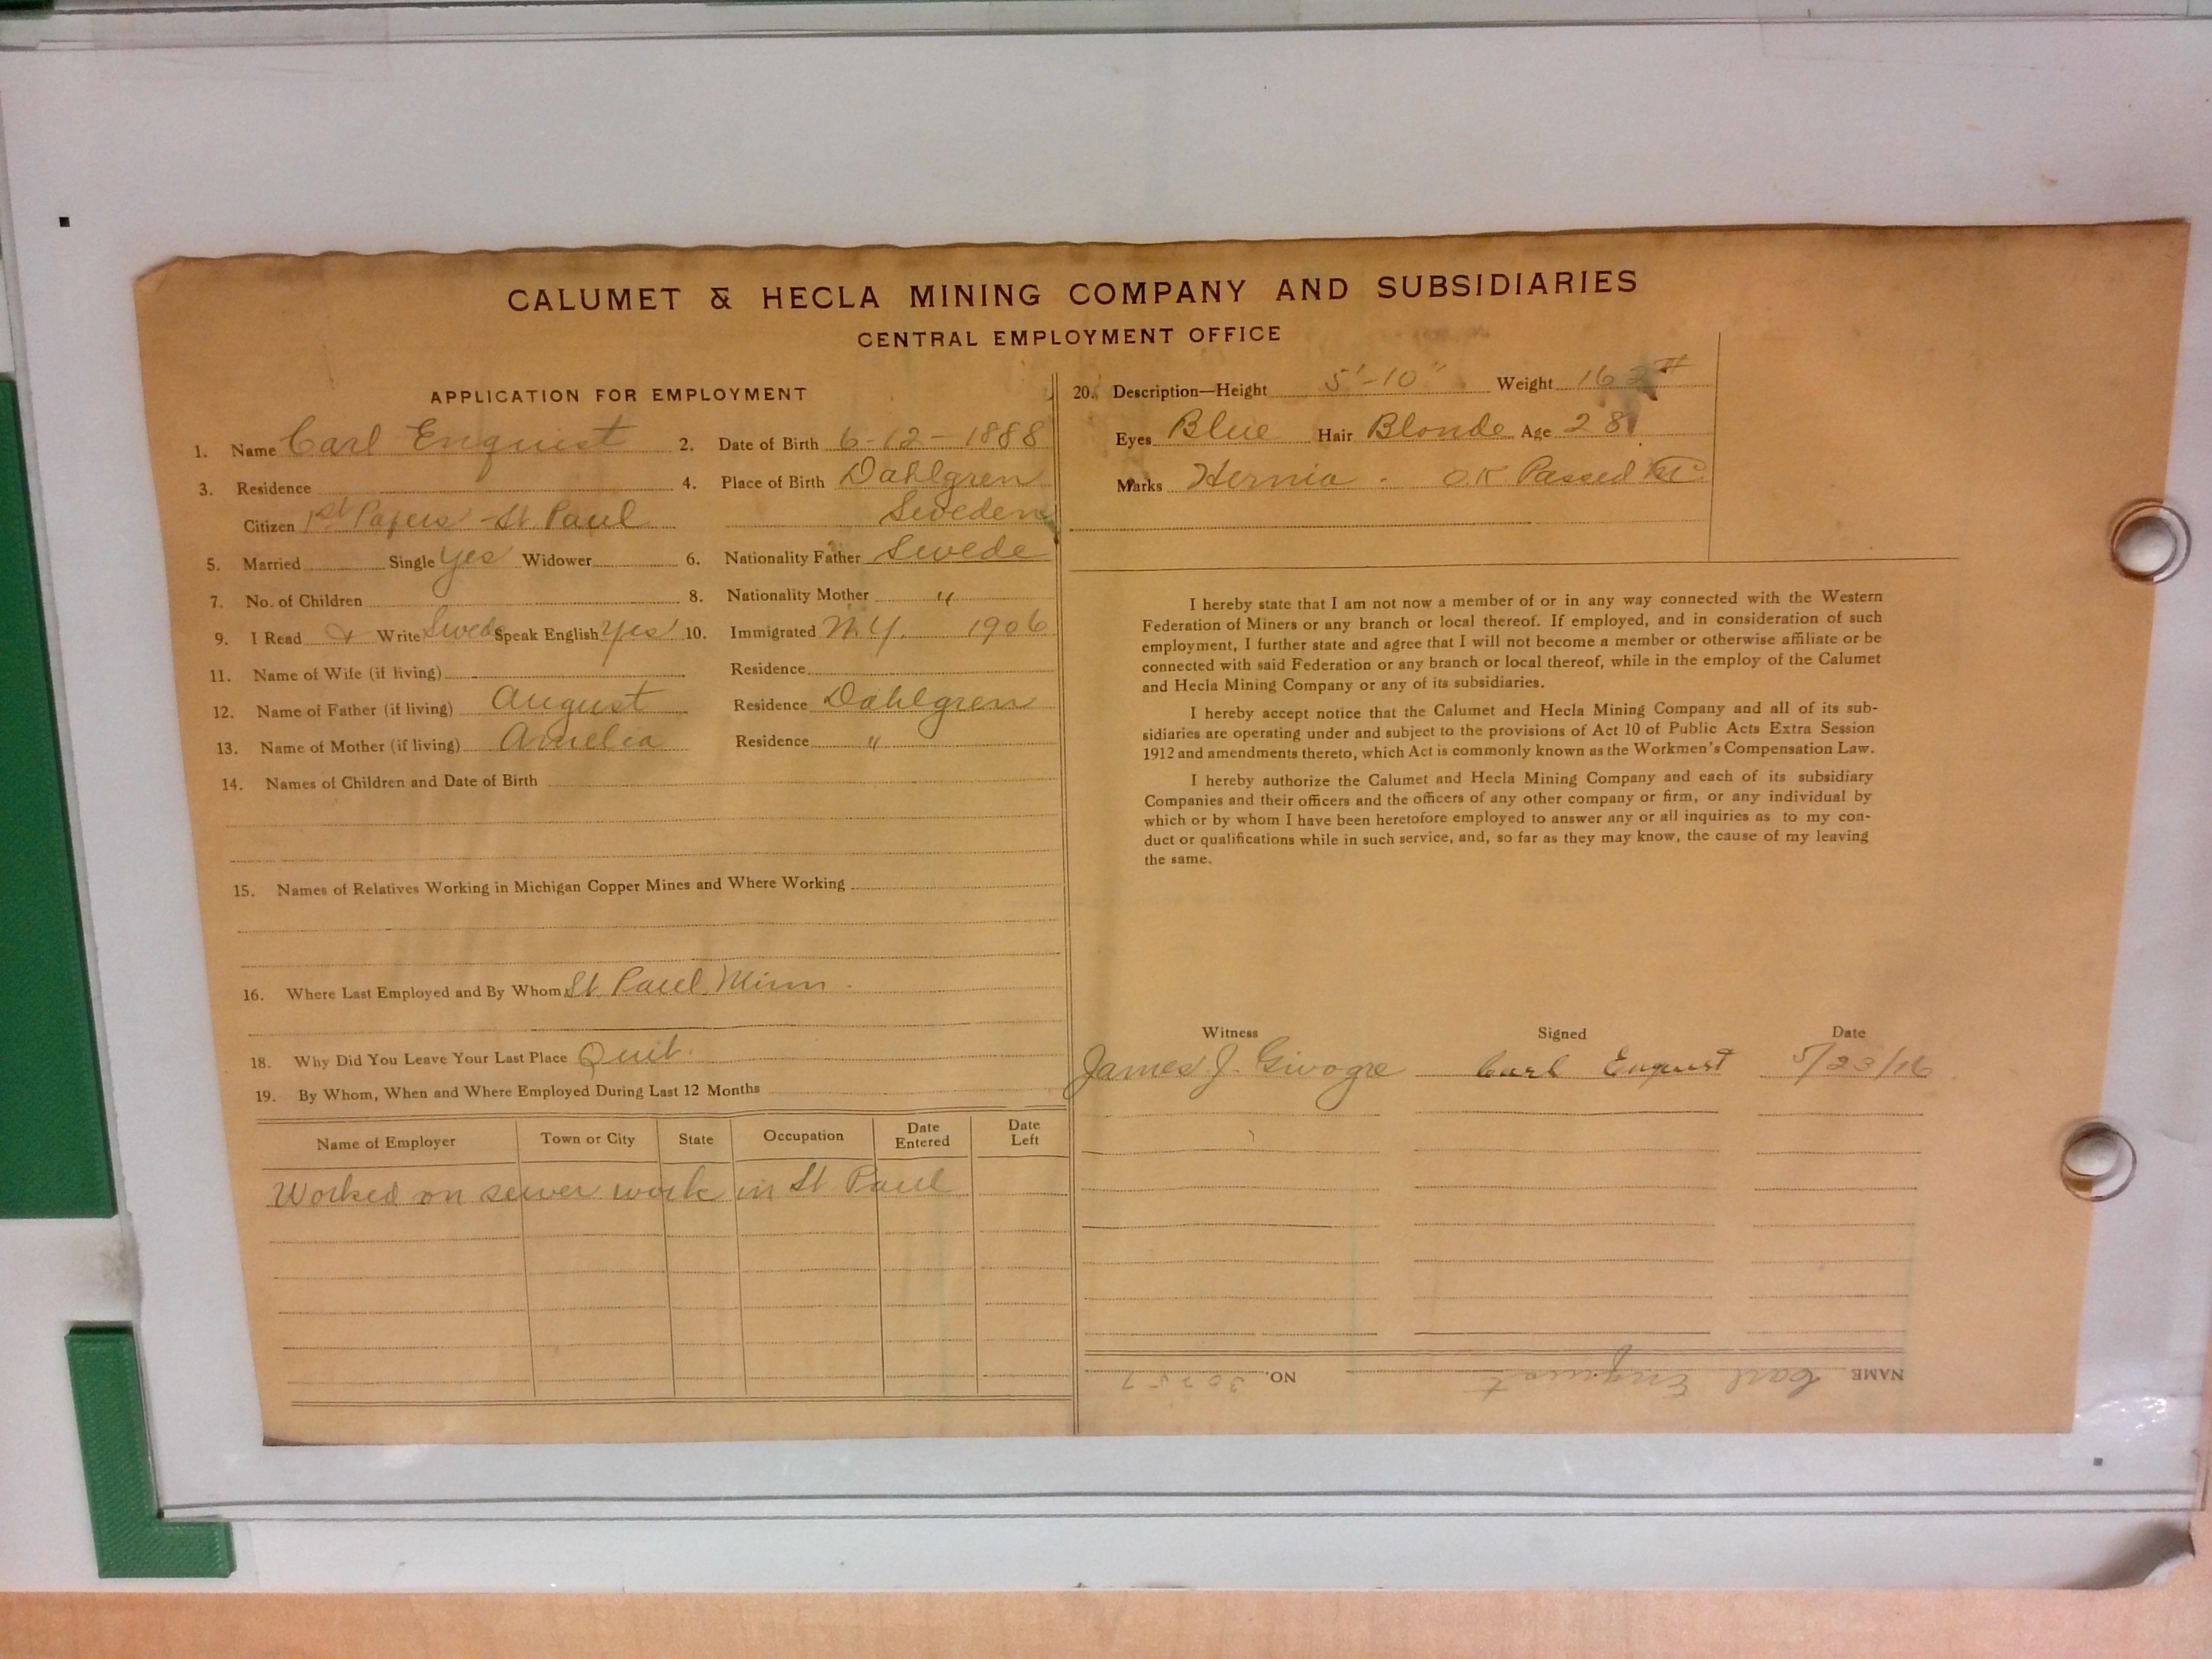 CALUMET & HECLA MINING COMPANY AND SUBSIDIARIES
CENTRAL EMPLOYMENT OFFICE
APPLICATION FOR EMPLOYMENT
1. Name Carl Enquist 2. Date of Birth 6-12-1888
3. Residence 4. Place of Birth Dahlgren
Citizen 1st Papers - St. Paul Sweden
5. Married Single Yes Widower 6. Nationality Father Swede
7. No. of Children 8. Nationality Mother "
9. I Read & Write Swede Speak English Yes 10. Immigrated N.Y. 1906
11. Name of Wife (if living) Residence
12. Name of Father (if living) August Residence Dahlgren
13. Name of Mother (if living) Amelia Residence "
14. Names of Children and Date of Birth
15. Names of Relatives Working in Michigan Copper Mines and Where Working
16. Where Last Employed and By Whom St. Paul Minn.
18. Why Did You Leave Your Last Place Quit.
19. By Whom, When and Where Employed During Last 12 Months
Name of Employer Town or City State Occupation Date Entered Date Left
Worked on sewer work in St Paul
20. Description—Height 5'-10" Weight 162 #
Eyes Blue Hair Blonde Age 28
Marks Hernia - O.K Passed
I hereby state that I am not now a member of or in any way connected with the Western
Federation of Miners or any branch or local thereof. If employed, and in consideration of such
employment, I further state and agree that I will not become a member or otherwise affiliate or be
connected with said Federation or any branch or local thereof, while in the employ of the Calumet
and Hecla Mining Company or any of its subsidiaries.
I hereby accept notice that the Calumet and Hecla Mining Company and all of its sub-
sidiaries are operating under and subject to the provisions of Act 10 of Public Acts Extra Session
1912 and amendments thereto, which Act is commonly known as the Workmen's Compensation Law.
I hereby authorize the Calumet and Hecla Mining Company and each of its subsidiary
Companies and their officers and the officers of any other company or firm, or any individual by
which or by whom I have been heretofore employed to answer any or all inquiries as to my con-
duct or qualifications while in such service, and, so far as they may know, the cause of my leaving
the same.
Witness Signed Date
James J. Carl Enquist 5/23/16
NAME Carl Enquist NO. 30257